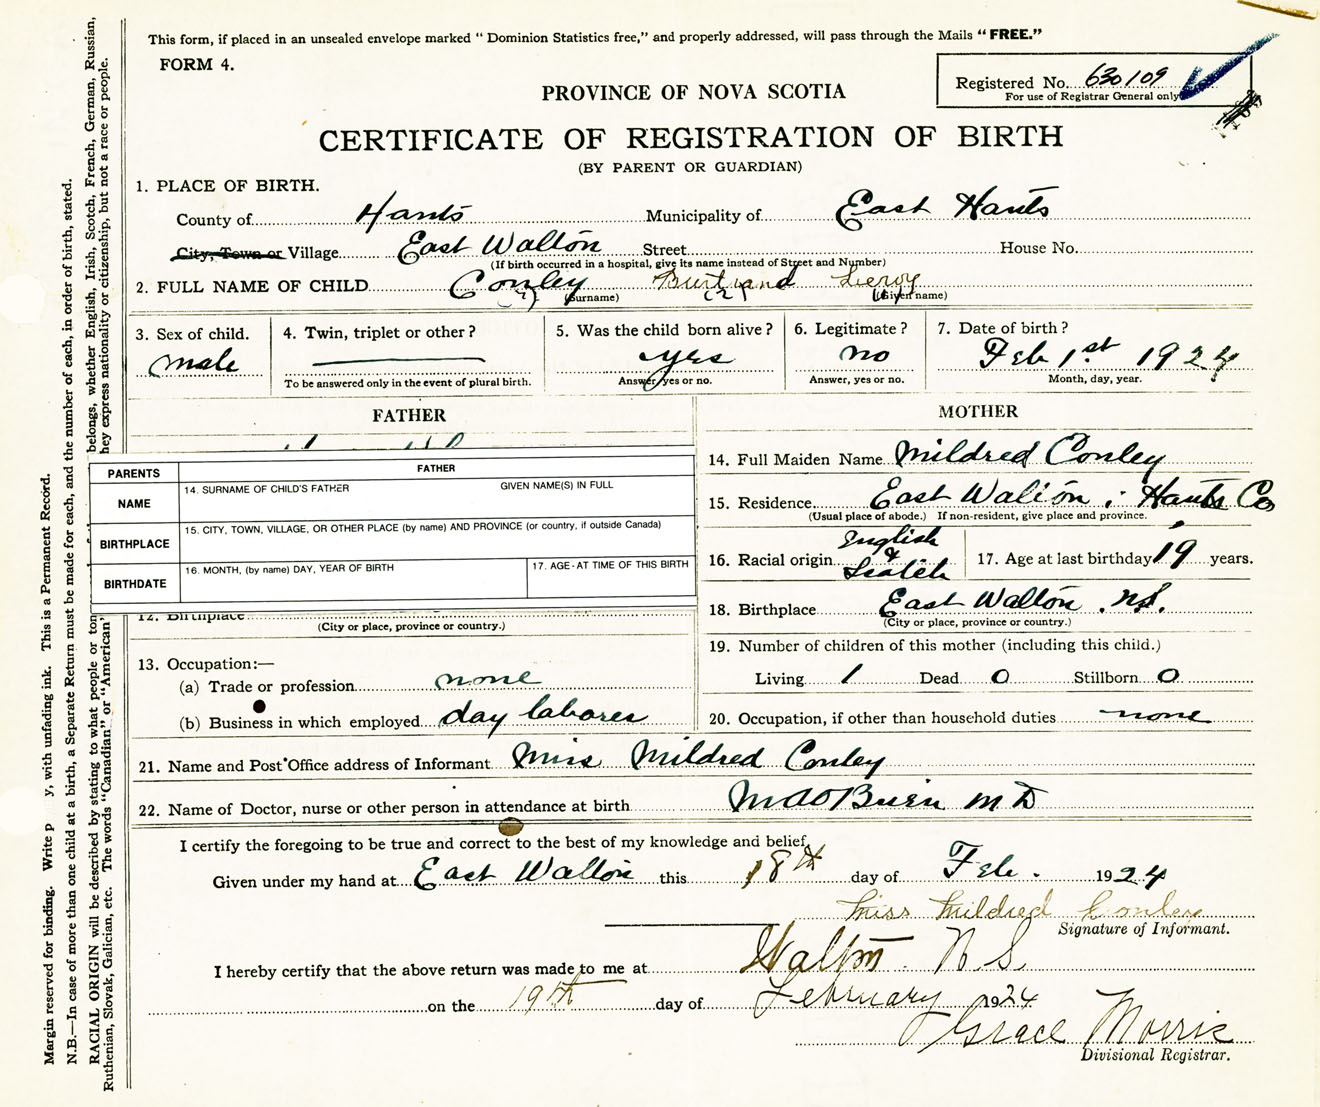 This form, if placed in an unsealed envelope marked " Dominion Statistics free," and properly addressed, will pass through the Mails "FREE."
FORM 4.
Registered No. 630109
For use of Registrar General only
PROVINCE OF NOVA SCOTIA
CERTIFICATE OF REGISTRATION OF BIRTH
(BY PARENT OR GUARDIAN)
1. PLACE OF BIRTH.
County of Hants Municipality of East Hants
City, Town or Village East Walton Street House No.
(If birth occurred in a hospital, give its name instead of Street and Number)
2. FULL NAME OF CHILD Conley Burtrand Leroy
(Surname) (2) (1) (Given name)
3. Sex of child. male
4. Twin, triplet or other?
To be answered only in the event of plural birth.
5. Was the child born alive? yes
Answer, yes or no.
6. Legitimate? no
Answer, yes or no.
7. Date of birth? Feb 1st 1924
Month, day, year.
FATHER
PARENTS FATHER
NAME 14. SURNAME OF CHILD'S FATHER GIVEN NAME(S) IN FULL
BIRTHPLACE 15. CITY, TOWN, VILLAGE, OR OTHER PLACE (by name) AND PROVINCE (or country, if outside Canada)
BIRTHDATE 16. MONTH, (by name) DAY, YEAR OF BIRTH 17. AGE - AT TIME OF THIS BIRTH
12. Birthplace
(City or place, province or country.)
13. Occupation:—
(a) Trade or profession none
(b) Business in which employed day laborer
MOTHER
14. Full Maiden Name Mildred Conley
15. Residence East Walton, Hants Co
(Usual place of abode.) If non-resident, give place and province.
16. Racial origin English & Scotch
17. Age at last birthday 19 years.
18. Birthplace East Walton, N.S.
(City or place, province or country.)
19. Number of children of this mother (including this child.)
Living 1 Dead 0 Stillborn 0
20. Occupation, if other than household duties none
21. Name and Post Office address of Informant Miss Mildred Conley
22. Name of Doctor, nurse or other person in attendance at birth O'Brien M D
I certify the foregoing to be true and correct to the best of my knowledge and belief,
Given under my hand at East Walton this 18th day of Feb. 1924
Miss Mildred Conley
Signature of Informant.
I hereby certify that the above return was made to me at Walton N S
on the 19th day of February 1924
Grace Morris
Divisional Registrar.
Margin reserved for binding. Write p y, with unfading ink. This is a Permanent Record.
N.B.—In case of more than one child at a birth, a Separate Return must be made for each, and the number of each, in order of birth, stated.
RACIAL ORIGIN will be described by stating to what people or ton belongs, whether English, Irish, Scotch, French, German, Russian,
Ruthenian, Slovak, Galician, etc. The words "Canadian" or "American" hey express nationality or citizenship, but not a race or people.